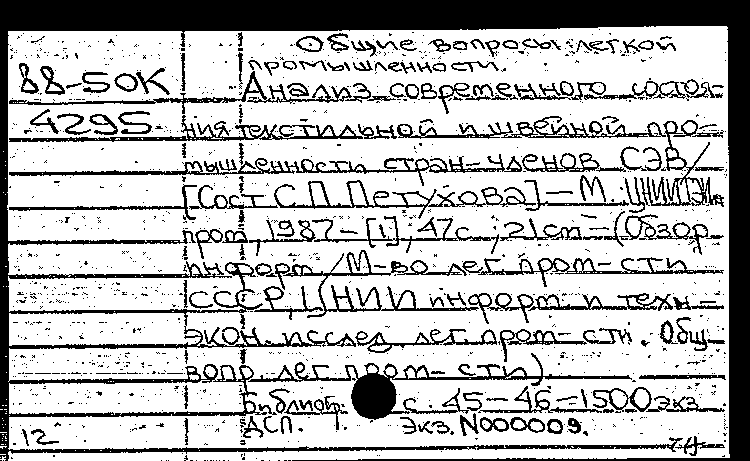 Общие вопросы легкой
промышленности.
88-50К Анализ современного состоя-
4295 ния текстильной и швейной про-
мышленности стран-членов СЭВ/
[Сост С.П. Петухова]. — М. ЦНИИТЭИлег
пром, 1987 – [1], 47с ; 21 cm – (Обзор.
информ. / М-во лег. пром-сти
СССР, ЦНИИ информ. и техн-
экон. исслед. лег. пром-сти. Общ.
вопр. лег пром-сти).
Библиогр. с. 45–46 – 1500 экз
ДСП. 1. Экз. N000009.
12